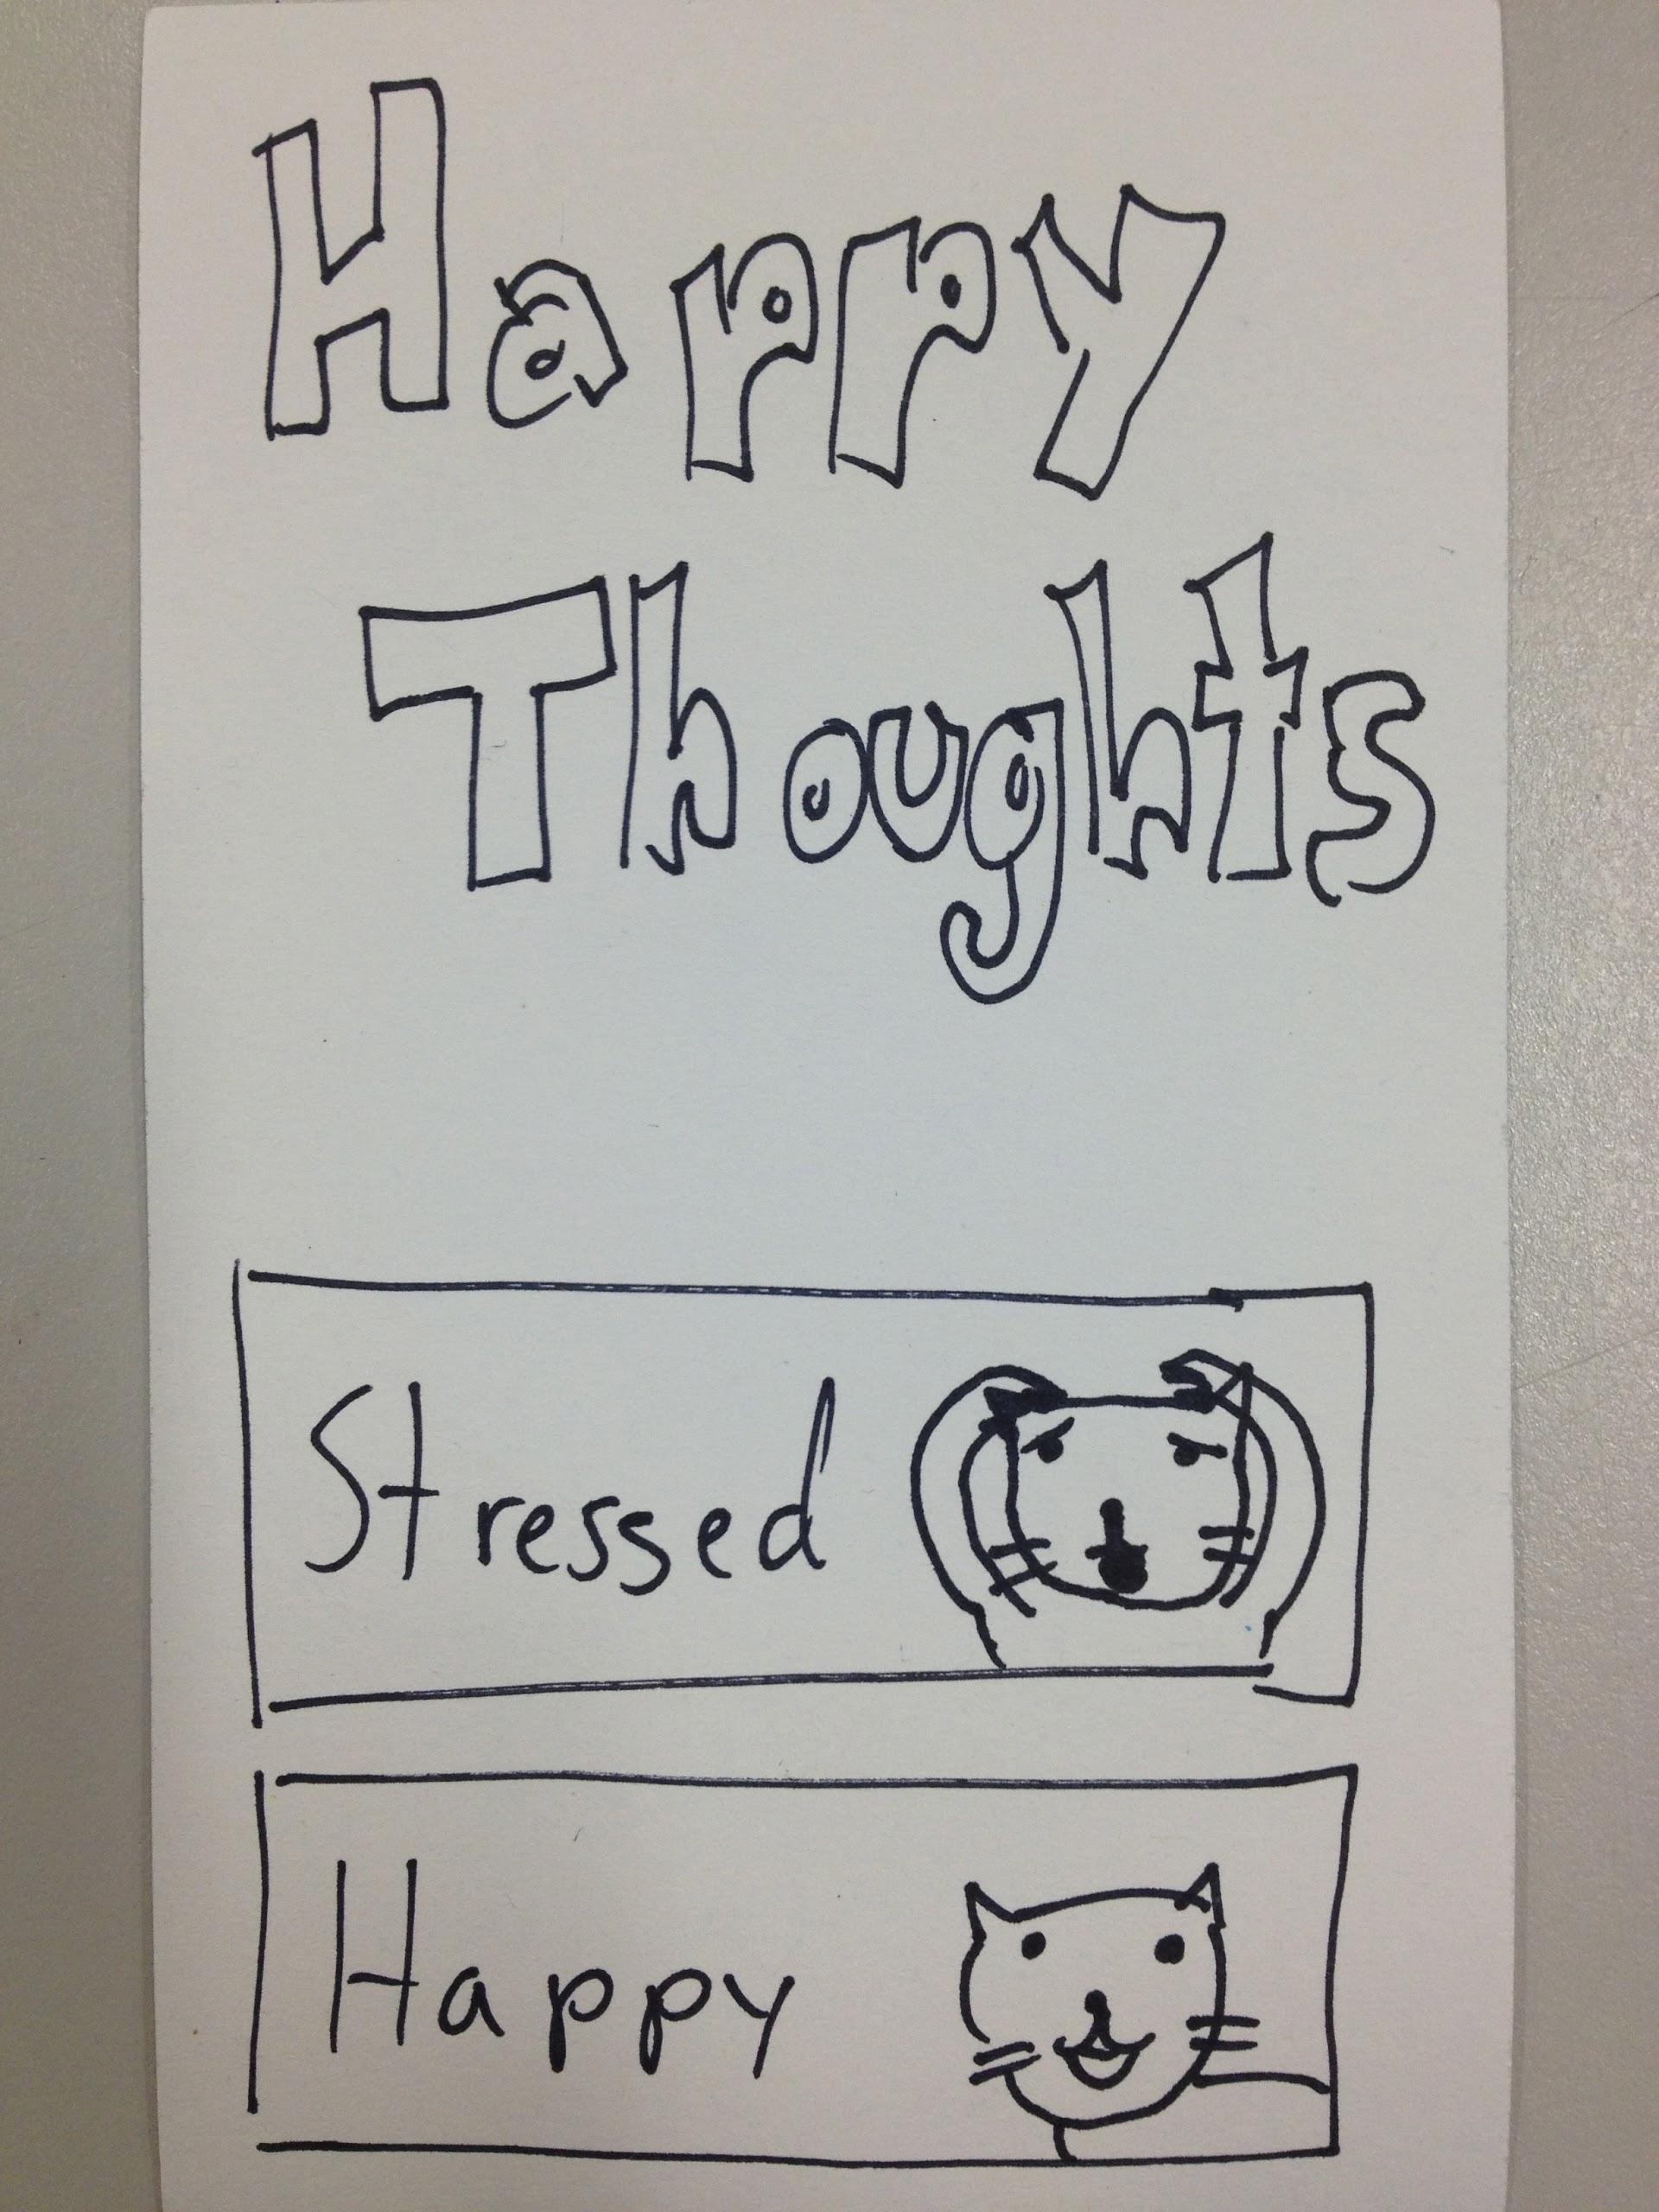 Happy
Thoughts
Stressed
Happy